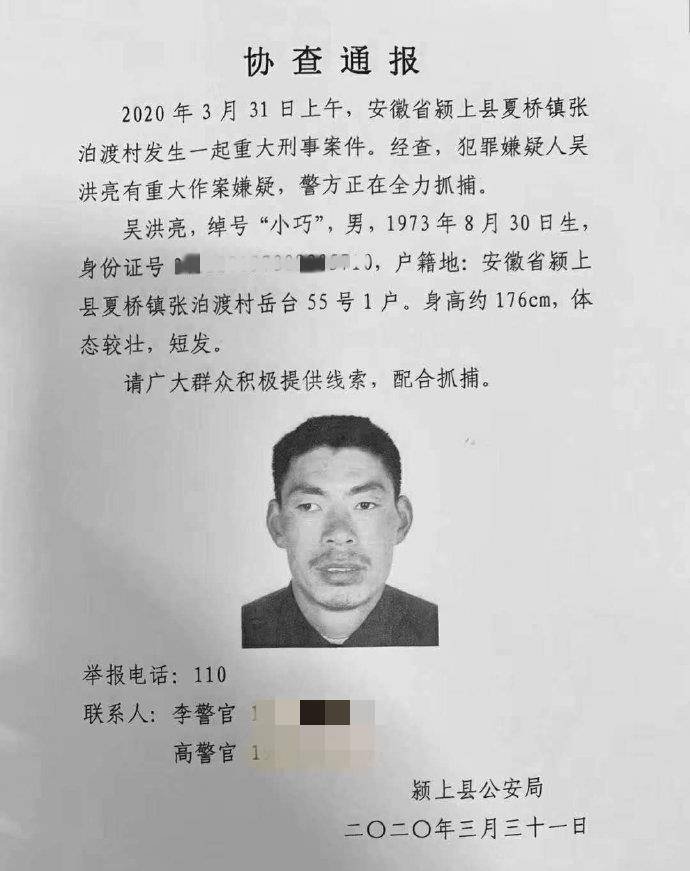 协查通报
2020年3月31日上午，安徽省颍上县夏桥镇张
泊渡村发生一起重大刑事案件。经查，犯罪嫌疑人吴
洪亮有重大作案嫌疑，警方正在全力抓捕。
吴洪亮，绰号“小巧”，男，1973年8月30日生，
身份证号，户籍地：安徽省颍上
县夏桥镇张泊渡村岳台55号1户。身高约176cm，体
态较壮，短发。
请广大群众积极提供线索，配合抓捕。
举报电话：110
联系人：李警官
高警官
颍上县公安局
二〇二〇年三月三十一日